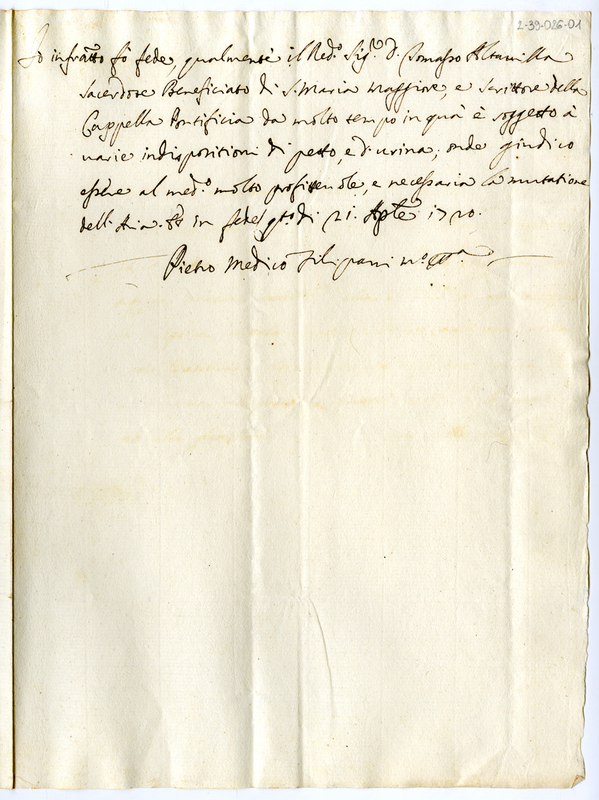 2-39-026-01
Io infratto fò fede, qualmente il Red.o Sig.r D. Tomasso Altamilla
Sacerdote Beneficiato di S. Maria Maggiore, e Scrittore della
Cappella Pontificia da molto tempo in quà è soggetto à
varie indispositioni di petto, e d'urina; onde giudico
essere al med.o molto profittevole, e necessaria la mutatione
dell'Aria. in fede di 21. 1720.
Pietro Medico Filipani